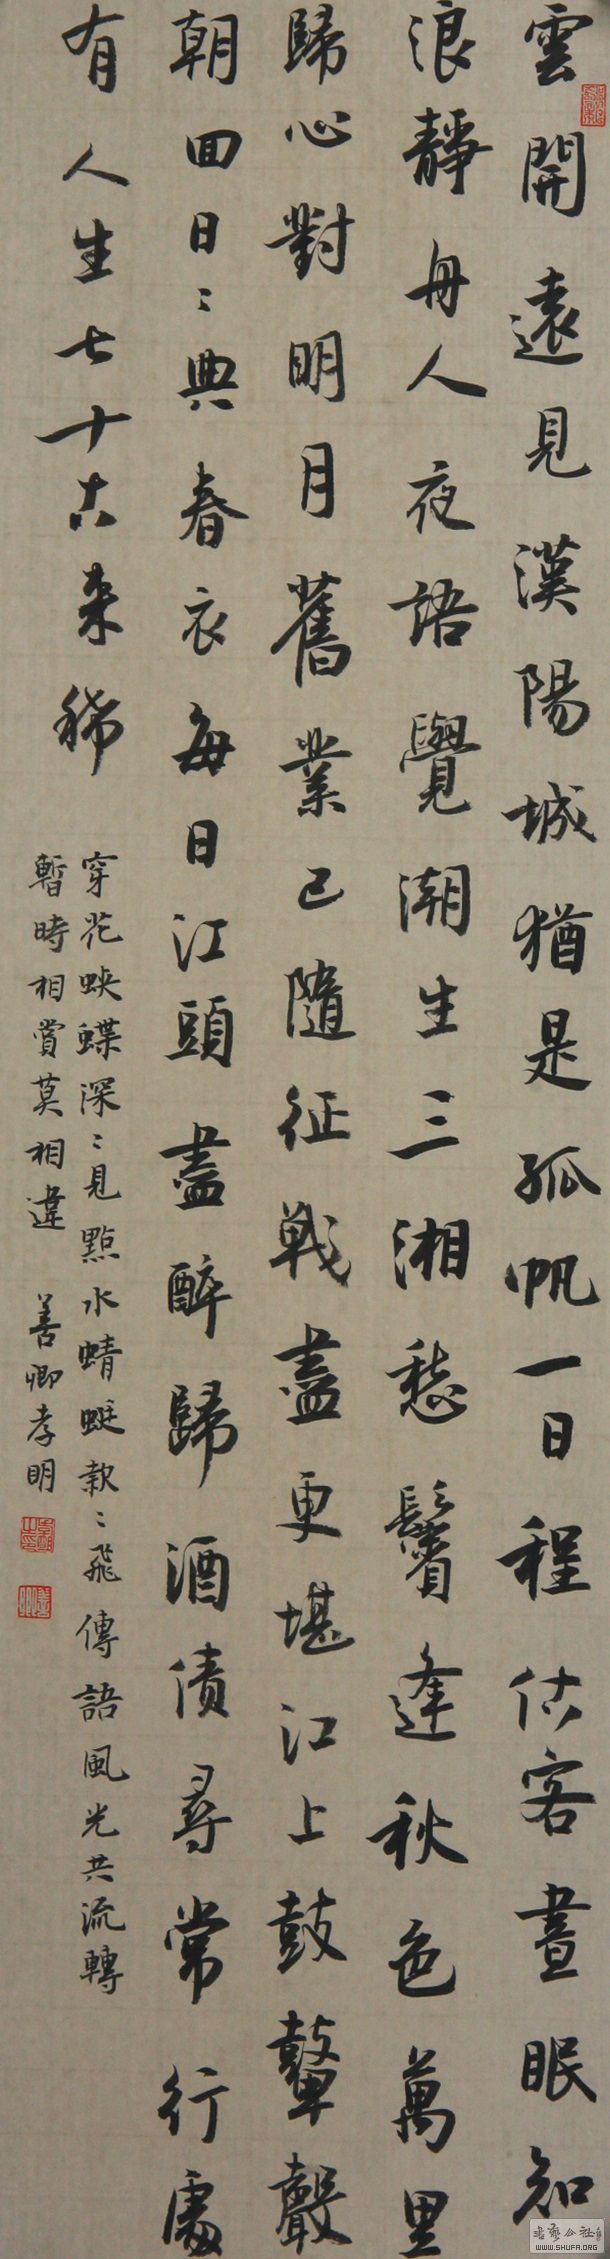 雲開遠見漢陽城猶是孤帆一日程估客晝眠知
浪靜舟人夜語覺潮生三湘愁鬢逢秋色萬里
歸心對明月舊業已隨征戰盡更堪江上鼓鼙聲
朝回日〻典春衣每日江頭盡醉歸酒債尋常行處
有人生七十古來稀
穿花蛺蝶深〻見點水蜻蜓款〻飛傳語風光共流轉
暫時相賞莫相違 善卿孝明
书艺公社
WWW.SHUFA.ORG